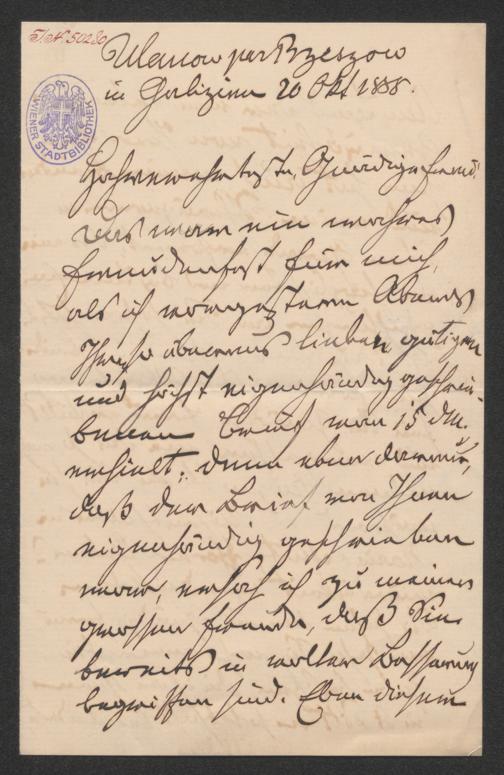 I.N. 50280
WIENER STADTBIBLIOTHEK
Ulanow per Rzeszow
in Galizien 20 Okt 1888.
Hochverehrteste, Gnädige Frau!
Das war ein wahres
Freudenfest für mich,
als ich vorgestern Abends
Ihren so überaus lieben gütigen
und höchst eigenhändig geschrie-
benen Brief vom 15 dM.
erhielt; denn eben daraus,
daß der Brief von Ihnen
eigenhändig geschrieben
war, ersah ich zu meiner
grossen Freude, daß Sie
bereits in voller Besserung
begriffen sind. Eben diesem